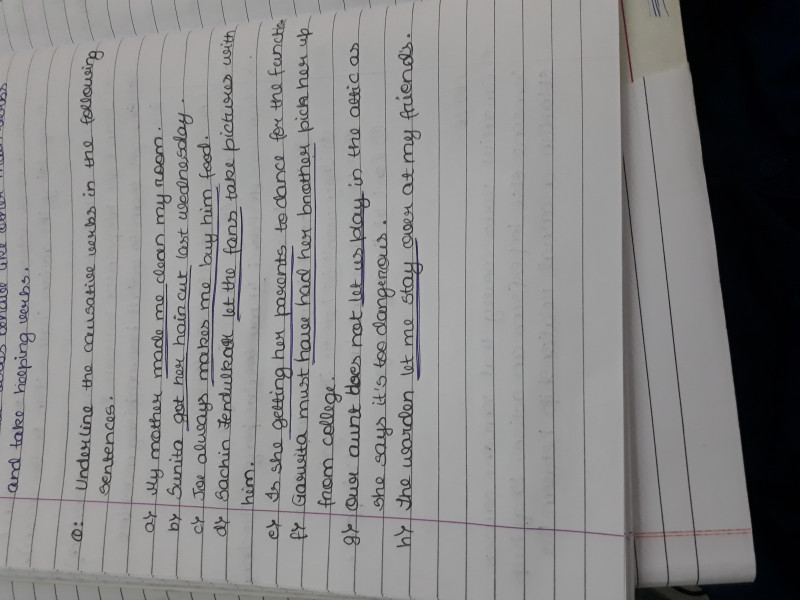 and take helping verbs.
Q: Underline the causative verbs in the following
sentences.
a) My mother made me clean my room.
b) Sunita got her haircut last wednesday.
c) Joe always makes me buy him food.
d) Sachin Tendulkar let the fans take pictures with
him.
e) Is she getting her parents to dance for the functi
f) Garvita must have had her brother pick her up
from college.
g) Our aunt does not let us play in the attic as
she says it's too dangerous.
h) The warden let me stay over at my friend's.